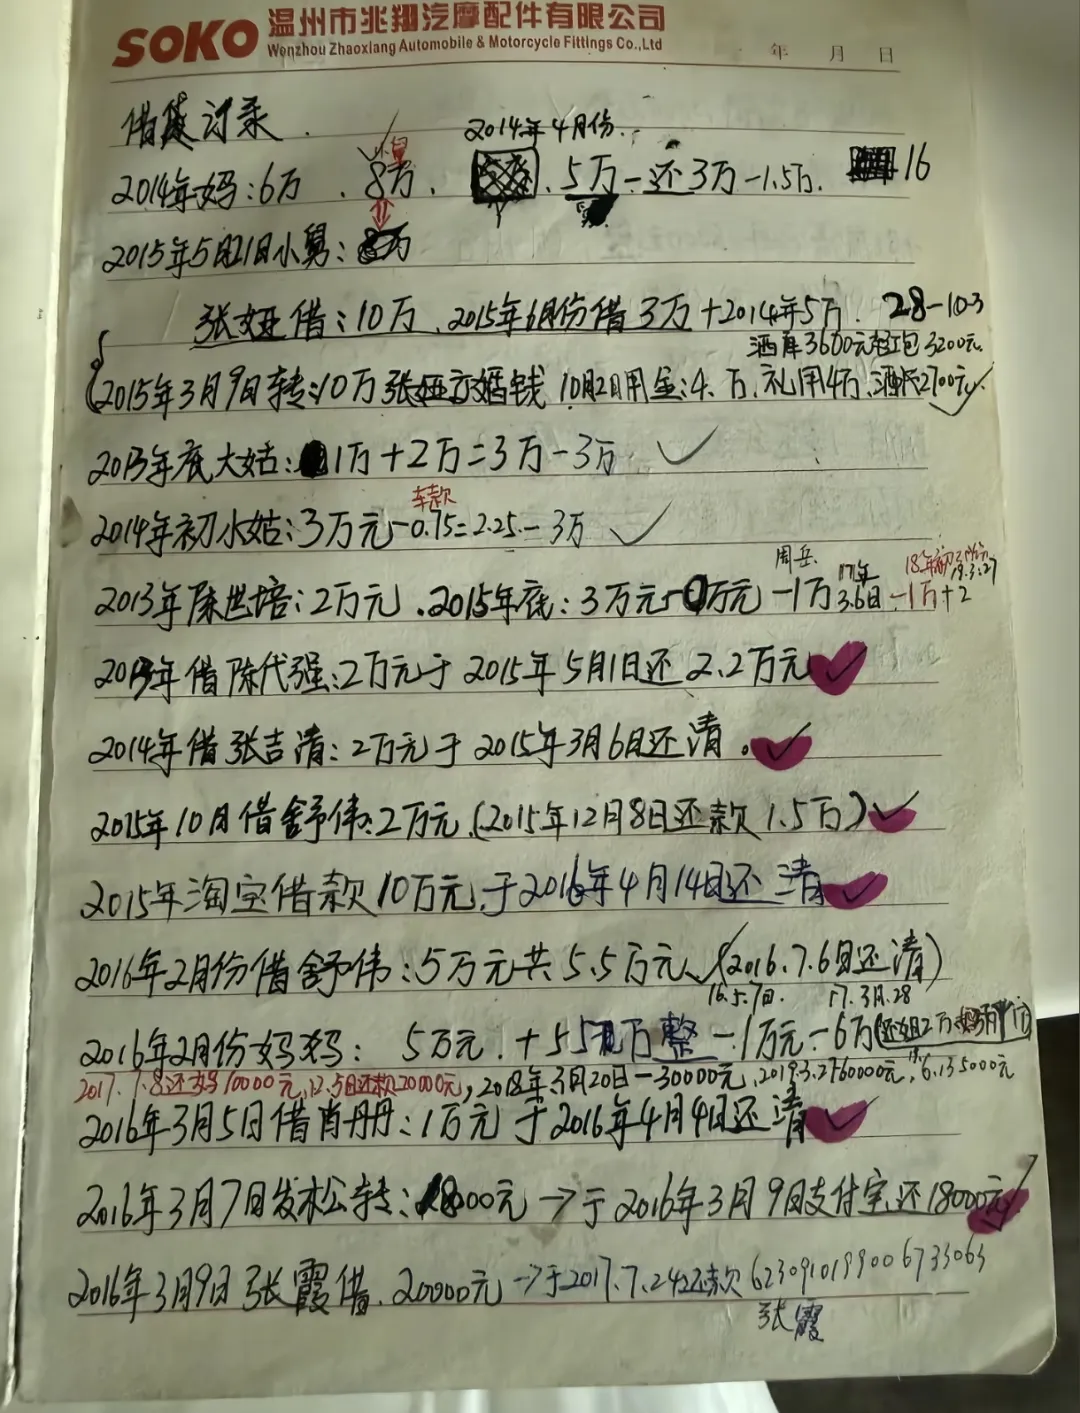 SOKO 温州市兆翔汽摩配件有限公司
Wenzhou Zhaoxiang Automobile & Motorcycle Fittings Co.,Ltd
年 月 日
借贷记录
2014年4月份
小舅
2014年妈:6万、8万、5万-还3万-1.5万. 16
2015年5月21日小舅:
张娅借:10万、2015年6月份借3万+2014年5万. 28-10-3
酒席3600元 红包3200元
2015年3月9日转:10万张娅 婚钱 10月2日用金:4.万、礼用4万、酒 2700元
2013年底大姑:1万+2万=3万-3万
车款
2014年初小姑:3万元-0.75=2.25.-3万
周岳 17年 18年初 19.3.27
2013年陈世培:2万元、2015年底:3万元 万元-1万 3.6日 -1万+2
2013年借陈代强:2万元于2015年5月1日还2.2万元
2014年借张吉清:2万元于2015年3月6日还清。
2015年10月借舒伟:2万元(2015年12月8日还款1.5万)
2015年淘宝借款10万元,于2016年4月14日还清
2016年2月份借舒伟:5万元共5.5万元、(2016.7.6日还清)
16.5.7日. 17.3月.28
2016年2月份妈妈: 5万元.+5 万整-1万元-6万(还姐2万
2017.7.8还妈10000元,12.5日还款20000元,2018年3月20日-30000元,2019.3.27 60000元, 6.13 5000元
2016年3月5日借肖丹丹:1万元于2016年4月4日还清
2016年3月7日发松转:18000元→于2016年3月9日支付宝还18000元
2016年3月9日张霞借.20000元→于2017.7.24还款6230910199006733063
张霞